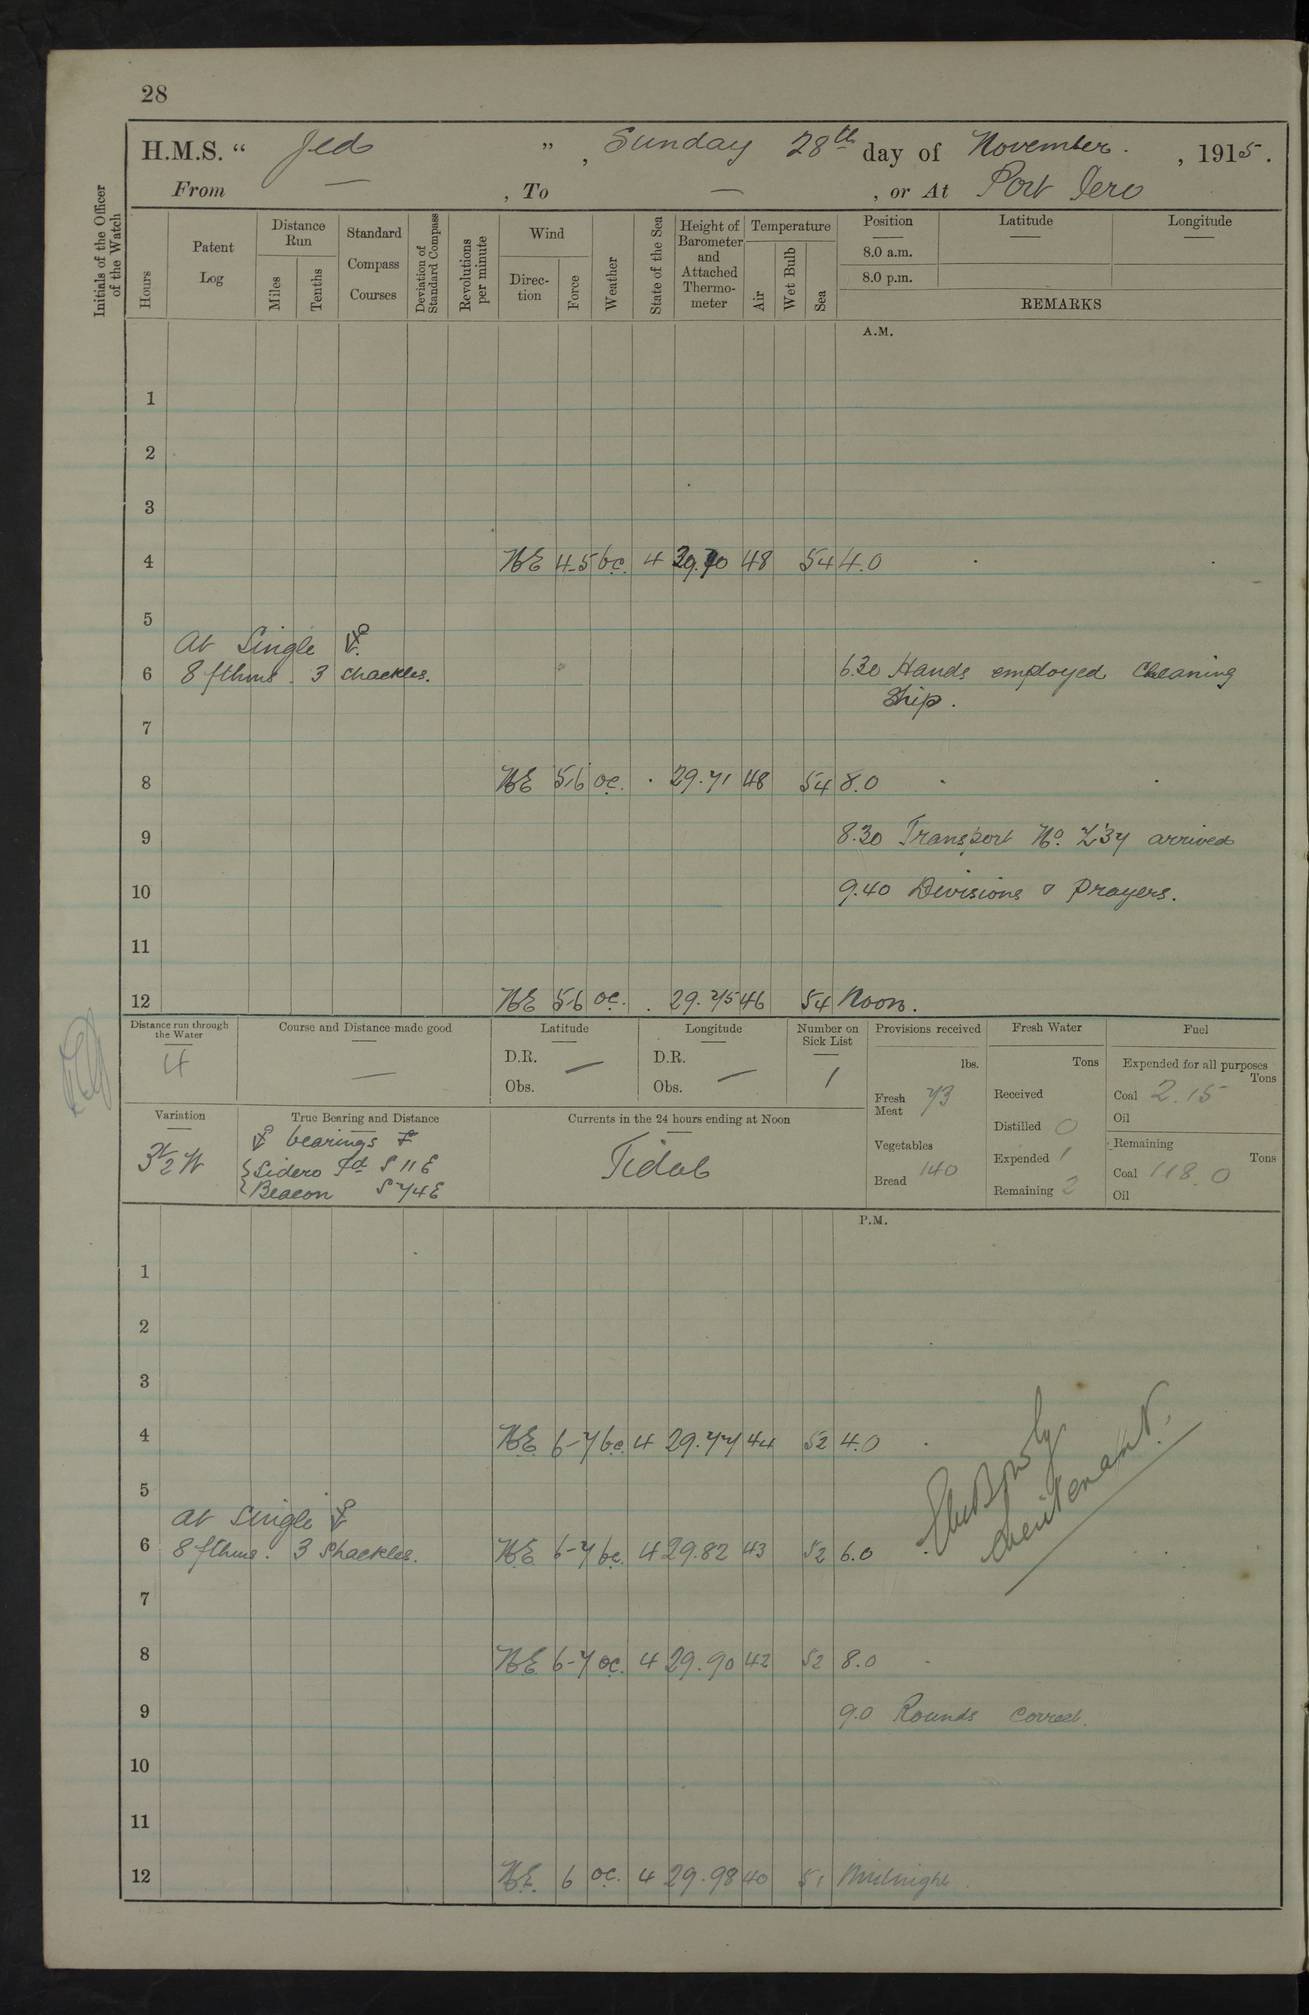 28
H.M.S. “ Jed ” , Sunday 28th day of November . , 1915 .
From — , To — , or At Port Iero
Initials of the Officer of the Watch
Hours
Patent Log
Distance Run
Miles
Tenths
Standard Compass Courses
Deviation of Standard Compass
Revolutions per minute
Wind
Direction
Force
Weather
State of the Sea
Height of Barometer and Attached Thermometer
Temperature
Air
Wet Bulb
Sea
Position Latitude Longitude
8.0 a.m.
8.0 p.m.
REMARKS
A.M.
1
2
3
4 NE 4-5 bc. 4 29.70 48 54 4.0
5
At Single ⚓
6 8 fthms. 3 shackles. 6.30 Hands employed Cleaning
Ship.
7
8 NE 5-6 oc. . 29.71 48 54 8.0
9 8.30 Transport No. Z'37 arrived
10 9.40 Divisions & Prayers.
11
12 NE 5-6 oc. . 29.75 46 54 Noon.
Distance run through the Water
4
Course and Distance made good
—
Latitude
D.R. —
Obs.
Longitude
D.R.
Obs. —
Number on Sick List
1
Provisions received
lbs.
Fresh Meat 73
Vegetables
Bread 140
Fresh Water
Tons
Received
Distilled 0
Expended 1
Remaining 2
Fuel
Expended for all purposes
Tons
Coal 2.15
Oil
Remaining
Tons
Coal 118.0
Oil
Variation
3½ W
True Bearing and Distance
⚓ bearings
Sidero Id S 11 E
Beacon S 74 E
Currents in the 24 hours ending at Noon
Tidal
P.M.
1
2
3
4 NE 6-7 bc. 4 29.77 44 52 4.0
5
At Single ⚓
6 8 fthms. 3 Shackles. NE 6-7 bc. 4 29.82 43 52 6.0
Lieutenant.
7
8 NE 6-7 oc. 4 29.90 42 52 8.0
9 9.0 Rounds correct.
10
11
12 NE. 6 oc. 4 29.98 40 51 Midnight.